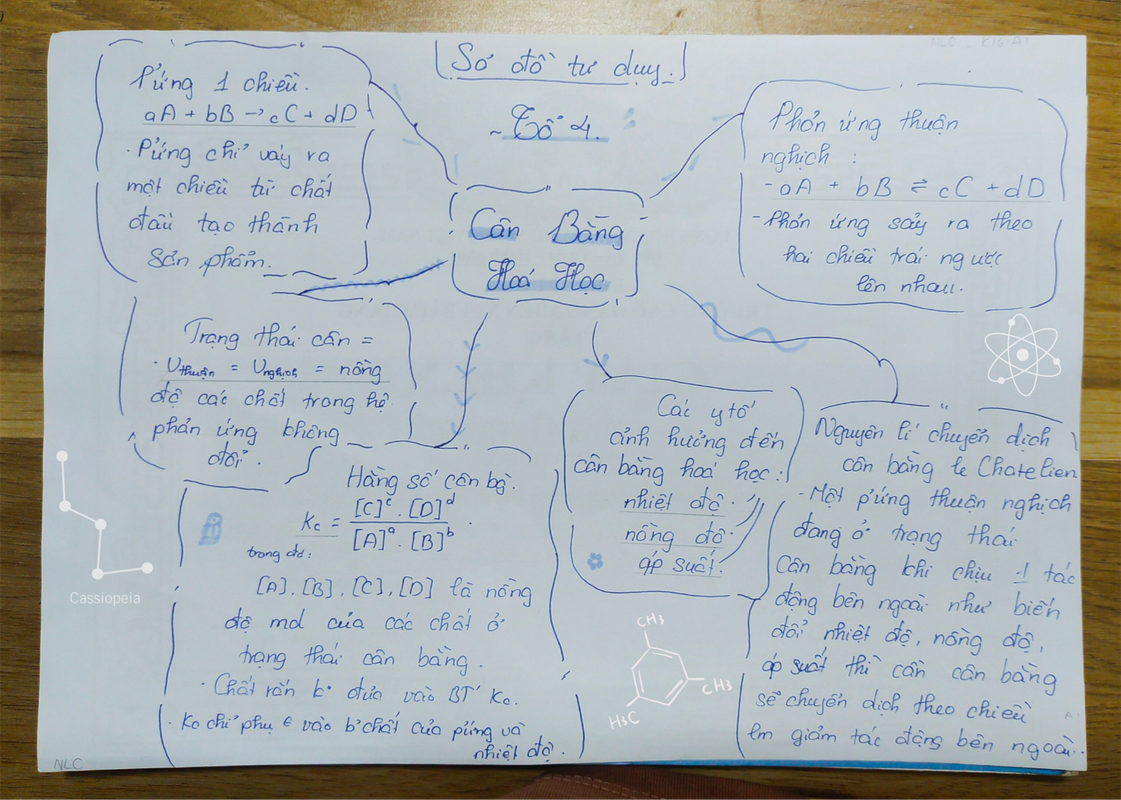 NLC - K16 A1
Sơ đồ tư duy.
~ Tổ 4.
Cân Bằng
Hoá Học
P'ứng 1 chiều.
aA + bB → cC + dD
· P'ứng chỉ xảy ra
một chiều từ chất
đầu tạo thành
sản phẩm.
Phản ứng thuận
nghịch :
- aA + bB ⇌ cC + dD
- Phản ứng sảy ra theo
hai chiều trái ngược
lên nhau.
Trạng thái cân =
· υthuận = υnghịch = nồng
độ các chất trong hệ
phản ứng không
đổi.
Hằng số cân bg.
Kc = [C]ᶜ . [D]ᵈ / [A]ᵃ . [B]ᵇ .
trong đó:
[A], [B], [C], [D] là nồng
độ mol của các chất ở
trạng thái cân bằng.
· Chất rắn k° đưa vào BT' Kc.
· Kc chỉ phụ ∈ vào b'chất của p'ứng và
nhiệt độ.
Các y tố
ảnh hưởng đến
cân bằng hoá học:
nhiệt độ.
nồng độ.
áp suất.
Nguyên lí chuyển dịch
cân bằng le Chatelien
- Một p'ứng thuận nghịch
đang ở trạng thái
Cân bằng khi chịu 1 tác
động bên ngoài như biến
đổi nhiệt độ, nồng độ,
áp suất thì cân cân bằng
sẽ chuyển dịch theo chiều
lm giảm tác động bên ngoài.
Cassiopeia
CH3
CH3
H3C
NLC